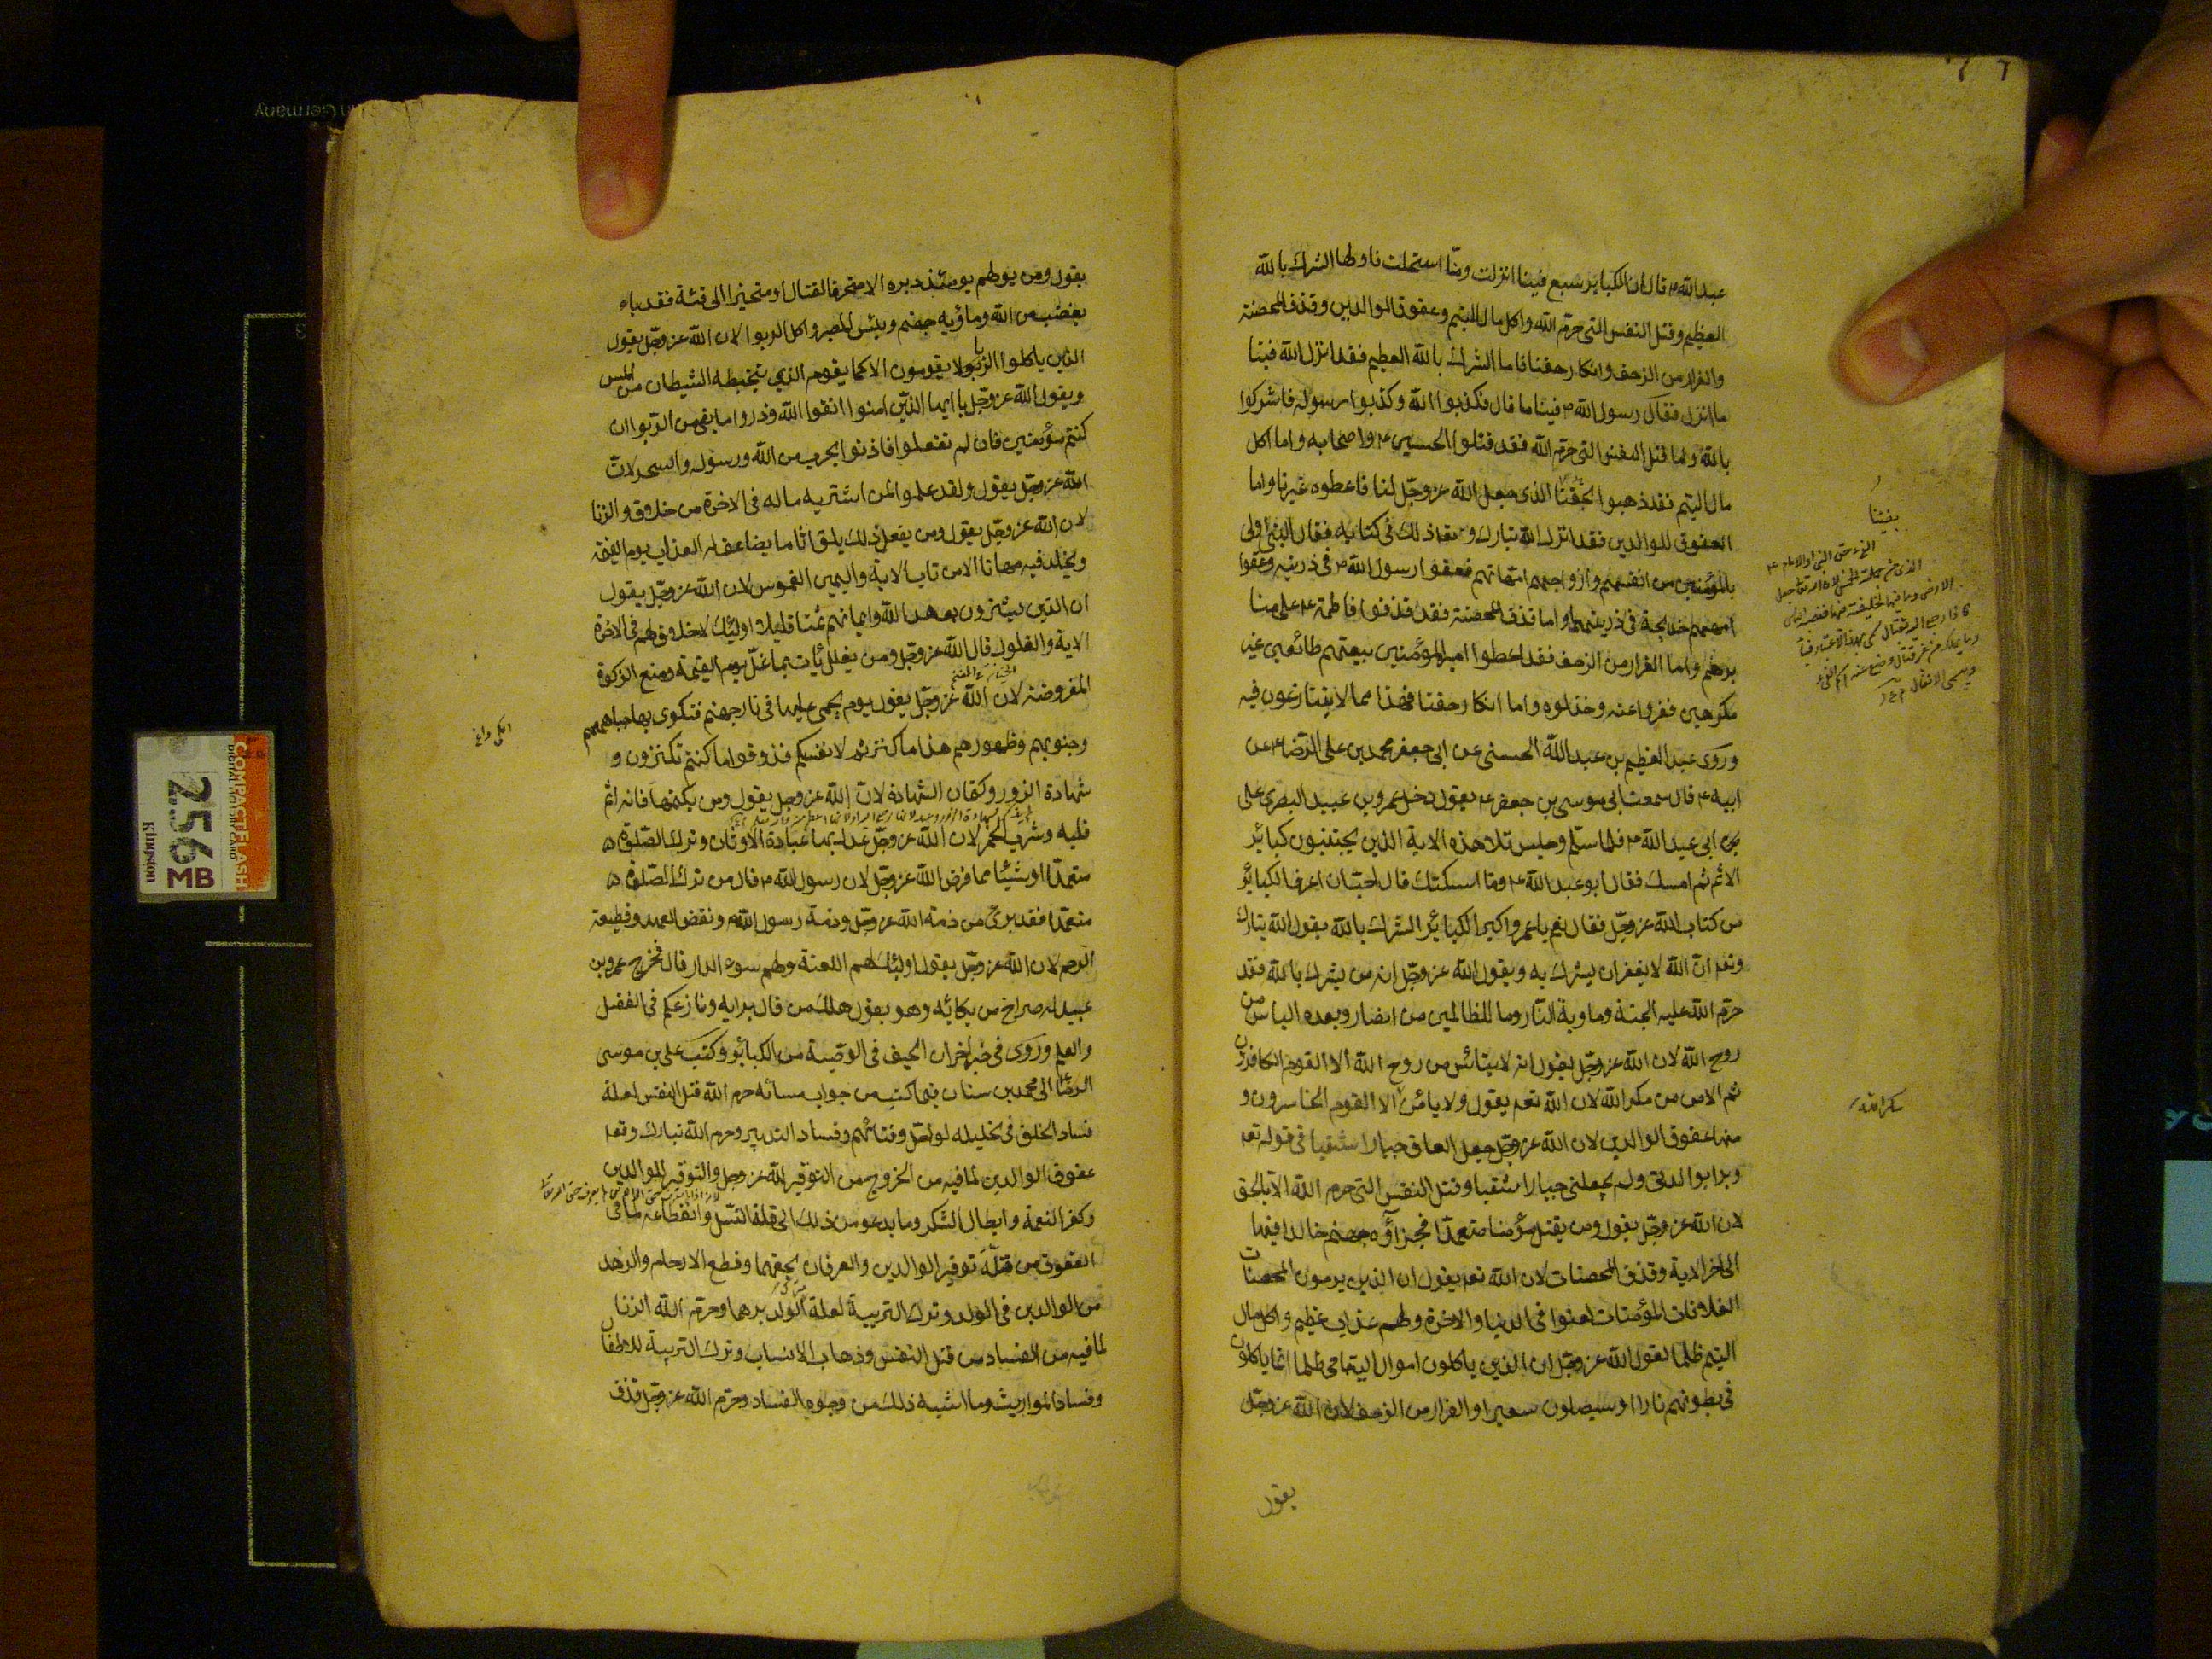 عبد الله ع قال ان الكباير سبع فينا انزلت ومنا استحلت فاولها الشرك بالله
العظيم وقتل النفس التي حرم الله واكل مال اليتيم وعقوق الوالدين وقذف المحصنة
والفرار من الزحف وانكار حقنا فاما الشرك بالله العظيم فقد انزل الله فينا
ما انزل فقال رسول الله ص فينا ما قال فكذبوا الله وكذبوا رسوله فاشركوا
بالله واما قتل النفس التي حرم الله فقد قتلوا الحسين ع واصحابه واما اكل
مال اليتيم فقد ذهبوا بحقنا الذي جعل الله عز وجل لنا فاعطوه غيرنا واما
العقوق للوالدين فقد انزل الله تبارك وتعا ذلك في كتابه فقال النبي اولى
بالمؤمنين من انفسهم وازواجهم امهاتهم فعقوا رسول الله ص في ذريته وعقوا
امهم خديجة في ذريتهما واما قذف المحصنة فقد قذفوا فاطمة ع على منا
برهم واما الفرار من الزحف فقد اعطوا امير المؤمنين بيعتهم طائعين غير
مكرهين ففروا عنه وخذلوه واما انكار حقنا فهذا مما لا يتنازعون فيه
وروى عبد العظيم بن عبد الله الحسني عن ابي جعفر محمد بن علي الرضا ع عن
ابيه ع قال سمعت ابي موسى بن جعفر ع يقول دخل عمرو بن عبيد البصري على
ابي عبد الله ع فلما سلم وجلس تلا هذه الاية الذين يجتنبون كبائر
الاثم ثم امسك فقال ابو عبد الله ع وما اسكتك قال احب ان اعرف الكبائر
من كتاب الله عز وجل فقال نعم يا عمرو اكبر الكبائر الشرك بالله يقول الله تبارك
وتعا ان الله لا يغفر ان يشرك به ويقول الله عز وجل انه من يشرك بالله فقد
حرم الله عليه الجنة وماويه النار وما للظالمين من انصار وبعده الياس من
روح الله لان الله عز وجل يقول انه لا يتائس من روح الله الا القوم الكافرون
ثم الامن من مكر الله لان الله تعا يقول ولا يامن الا القوم الخاسرون و
منها عقوق الوالدين لان الله عز وجل جعل العاق جبارا شقيا في قوله تعا
وبرا بوالدتي ولم يجعلني جبارا شقيا وقتل النفس التي حرم الله الا بالحق
لان الله عز وجل يقول ومن يقتل مؤمنا متعمدا فجزاؤه جهنم خالدا فيها
الى اخر الاية وقذف المحصنات لان الله تعا يقول ان الذين يرمون المحصنات
الغافلات المؤمنات لعنوا في الدنيا والاخرة ولهم عذاب عظيم واكل مال
اليتيم ظلما لقول الله عز وجل ان الذين ياكلون اموال اليتامى ظلما انما ياكلون
في بطونهم نارا وسيصلون سعيرا والفرار من الزحف لان الله عز وجل
يقول
مكر الله
يقول ومن يولهم يومئذ دبره الا متحرفا لقتال او متحيزا الى فئة فقد باء
بغضب من الله وماويه جهنم وبئس المصير واكل الربوا لان الله عز وجل يقول
الذين ياكلوا الربوا لا يقومون الا كما يقوم الذي يتخبطه الشيطان من المس
ويقول الله عز وجل يا ايها الذين امنوا اتقوا الله وذروا ما بقي من الربوا ان
كنتم مؤمنين فان لم تفعلوا فاذنوا بحرب من الله ورسوله والسحر لان
الله عز وجل يقول ولقد علموا لمن اشتريه ما له في الاخرة من خلاق والزنا
لان الله عز وجل يقول ومن يفعل ذلك يلق اثاما يضاعف له العذاب يوم القيمة
ويخلد فيه مهانا الا من تاب الاية واليمين الغموس لان الله عز وجل يقول
ان الذين يشترون بعهد الله وايمانهم ثمنا قليلا اولئك لا خلاق لهم في الاخرة
الاية والغلول قال الله عز وجل ومن يغلل يأت بما غل يوم القيمة ومنع الزكوة
المفروضة لان الله عز وجل يقول يوم يحمى عليها في نار جهنم فتكوى بها جباههم
وجنوبهم وظهورهم هذا ما كنزتم لانفسكم فذوقوا ما كنتم تكنزون و
شهادة الزور وكتمان الشهادة لان الله عز وجل يقول ومن يكتمها فانه اثم
قلبه وشرب الخمر لان الله عز وجل عدل بها عبادة الاوثان وترك الصلوة
متعمدا او شيئا مما فرض الله عز وجل لان رسول الله ص قال من ترك الصلوة
متعمدا فقد برئ من ذمة الله عز وجل وذمة رسول الله ص ونقض العهد وقطيعة
الرحم لان الله عز وجل يقول اولئك لهم اللعنة ولهم سوء الدار قال فخرج عمرو بن
عبيد له صراخ من بكائه وهو يقول هلك من قال برايه ونازعكم في الفضل
والعلم وروى في خبر اخر ان الحيف في الوصية من الكبائر وكتب علي بن موسى
الرضا ع الى محمد بن سنان فيما كتب من جواب مسائله حرم الله قتل النفس لعلة
فساد الخلق في تحليله لو احل وفنائهم وفساد التدبير وحرم الله تبارك وتعا
عقوق الوالدين لما فيه من الخروج من التوقير لله عز وجل والتوقير للوالدين
وكفر النعمة وابطال الشكر وما يدعو من ذلك الى قلة النسل وانقطاعه لما في
العقوق من قلة توقير الوالدين والعرفان بحقهما وقطع الارحام والزهد
من الوالدين في الولد وترك التربية لعلة ترك الولد برهما وحرم الله الزنا
لما فيه من الفساد من قتل النفس وذهاب الانساب وترك التربية للاطفال
وفساد المواريث وما اشبه ذلك من وجوه الفساد وحرم الله عز وجل قذف
COMPACTFLASH
256
MB
Kingston
Germany